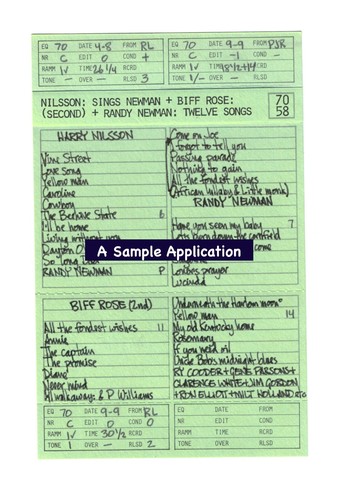 EQ 70 DATE 4-8 FROM RL
NR C EDIT 0 COND +
RAMM IV TIME 26 1/4 RCRD
TONE OVER — RLSD 3
EQ 70 DATE 9-9 FROM PJR
NR C EDIT -1 COND
RAMM IV TIME 18 1/2+14 RCRD
TONE 1/— OVER — RLSD
NILSSON: SINGS NEWMAN + BIFF ROSE:
(SECOND) + RANDY NEWMAN: TWELVE SONGS
70
58
HARRY NILSSON
Vine Street
Love Song
Yellow man
Caroline
Cowboy
The Beehive State 6
I'll be home
Living without you
Dayton O
So long Dad
RANDY NEWMAN P
Come on Joe
I forgot to tell you
Passing parade
Nothing to gain
All the fondest wishes
(African lullaby & Little monk)
RANDY NEWMAN
Have you seen my baby 7
Let's burn down the cornfield
come
Lucinda
A Sample Application
BIFF ROSE (2nd)
All the fondest wishes 11
Annie
The captain
The promise
Diane
Never mind
& P Williams
Underneath the Harlem moon
Yellow man 14
My old Kentucky home
Rosemary
If you need oil
Uncle Bob's midnight blues
RY COODER + GENE PARSONS +
CLARENCE WHITE + JIM GORDON
+ RON ELLIOTT + MILT HOLLAND etc
EQ 70 DATE 9-9 FROM RL
NR C EDIT 0 COND 0
RAMM IV TIME 30 1/2 RCRD
TONE 1 OVER — RLSD 2
EQ DATE FROM
NR EDIT COND
RAMM TIME RCRD
TONE OVER RLSD